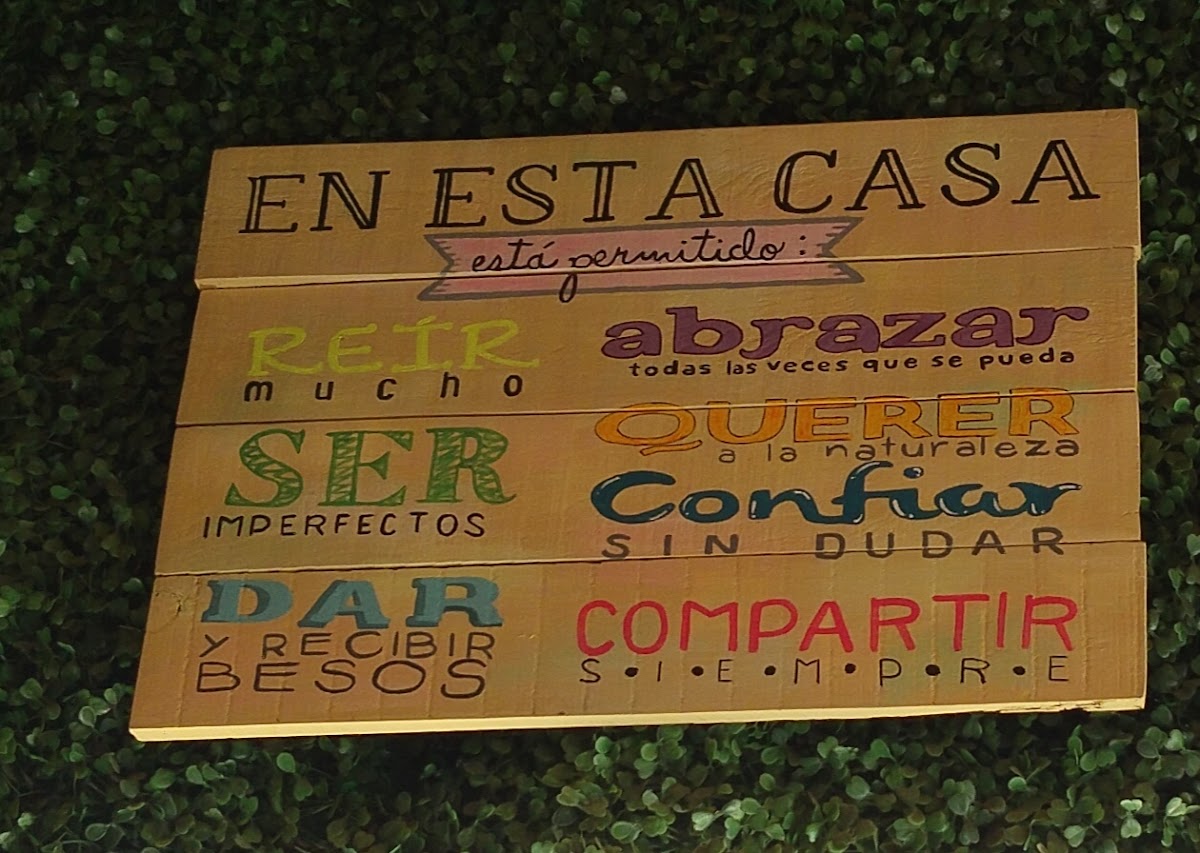 EN ESTA CASA
está permitido:
REÍR
mucho
SER
IMPERFECTOS
DAR
Y RECIBIR
BESOS
abrazar
todas las veces que se pueda
QUERER
a la naturaleza
Confiar
SIN DUDAR
COMPARTIR
S•I•E•M•P•R•E